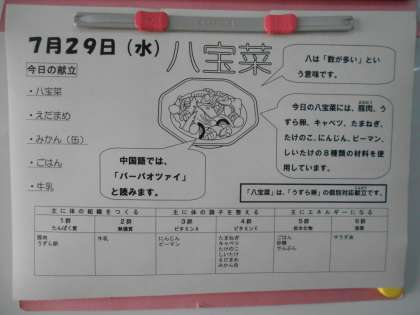 7月29日（水）八宝菜
今日の献立
・八宝菜
・えだまめ
・みかん（缶）
・ごはん
・牛乳
八は「数が多い」とい
う意味です。
今日の八宝菜には、豚肉、う
ずら卵、キャベツ、たまねぎ、
たけのこ、にんじん、ピーマン、
しいたけの８種類の材料を使
用しています。
中国語では、
「バーバオツァイ」
と読みます。
「八宝菜」は、「うずら卵」の個別対応献立です。
主に体の組織をつくる 主に体の調子を整える 主にエネルギーになる
1群 2群 3群 4群 5群 6群
たんぱく質 無機質 ビタミンA ビタミンC 炭水化物 脂質
豚肉 牛乳 にんじん たまねぎ ごはん
うずら卵 ピーマン キャベツ 砂糖
たけのこ でんぷん
しいたけ
えだまめ
みかん缶